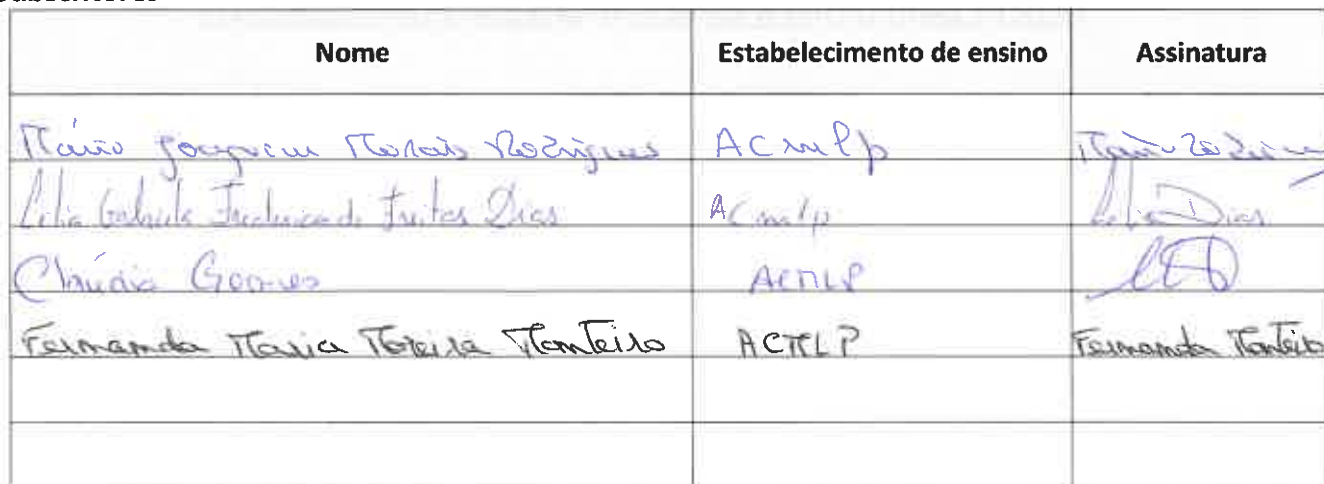 Nome Estabelecimento de ensino Assinatura
Mário Joaquim Morais Rodrigues ACMLP
Lélia Gabriela de Freitas Dias ACMLP Lélia Dias
Cláudia Gomes ACMLP
Fernanda Maria Moreira Monteiro ACMLP Fernanda Monteiro